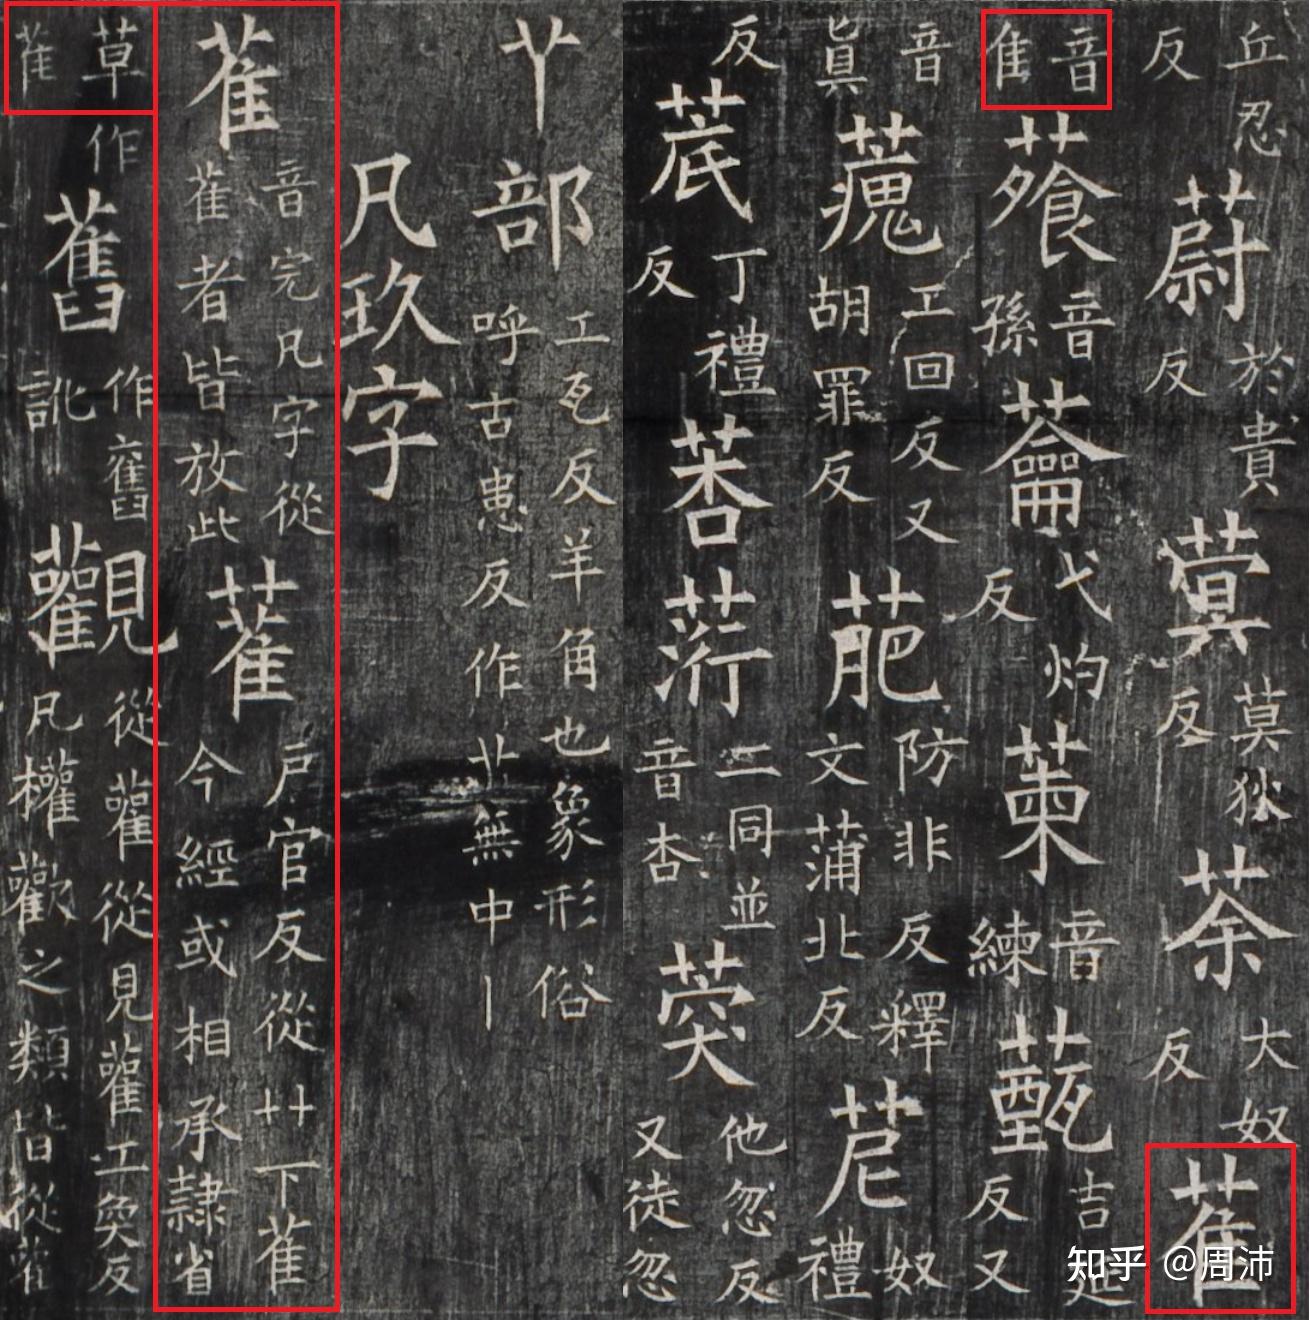 丘忍反蔚於貴反蓂莫狄反荼大奴反萑
音隹蕵音孫蘥弋灼反萰音練薽吉延反又
音眞藱工回反又胡罪反萉防非反釋文蒲北反苨奴禮
反菧丁禮反莕荇二同並音杏葖他忽反又徒忽
𦫳部工瓦反羊角也象形俗呼古患反作𦫳無中丨
凡玖字
雈音完凡字從雈者皆放此萑戶官反從艹下雈今經或相承隸省
草作萑舊作舊訛觀從雚從見雚工奐反凡權歡之類皆從雚
知乎 @周沛